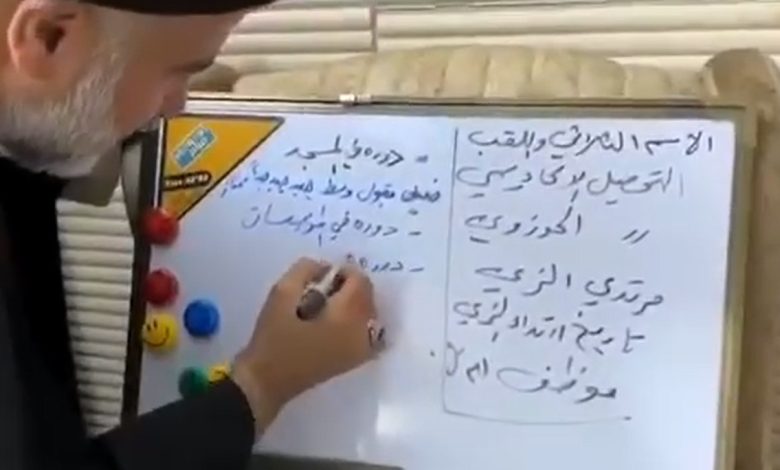 الاسم الثلاثي واللقب
التحصيل الاكاديمي
〃 الحوزوي
مرتدي الزي
تاريخ ارتداء الزي
موظف ام لا
- دوره في المسجد
ضعيف مقبول وسط جيد جيد جداً ممتاز
- دوره في المؤسسات
- دوره